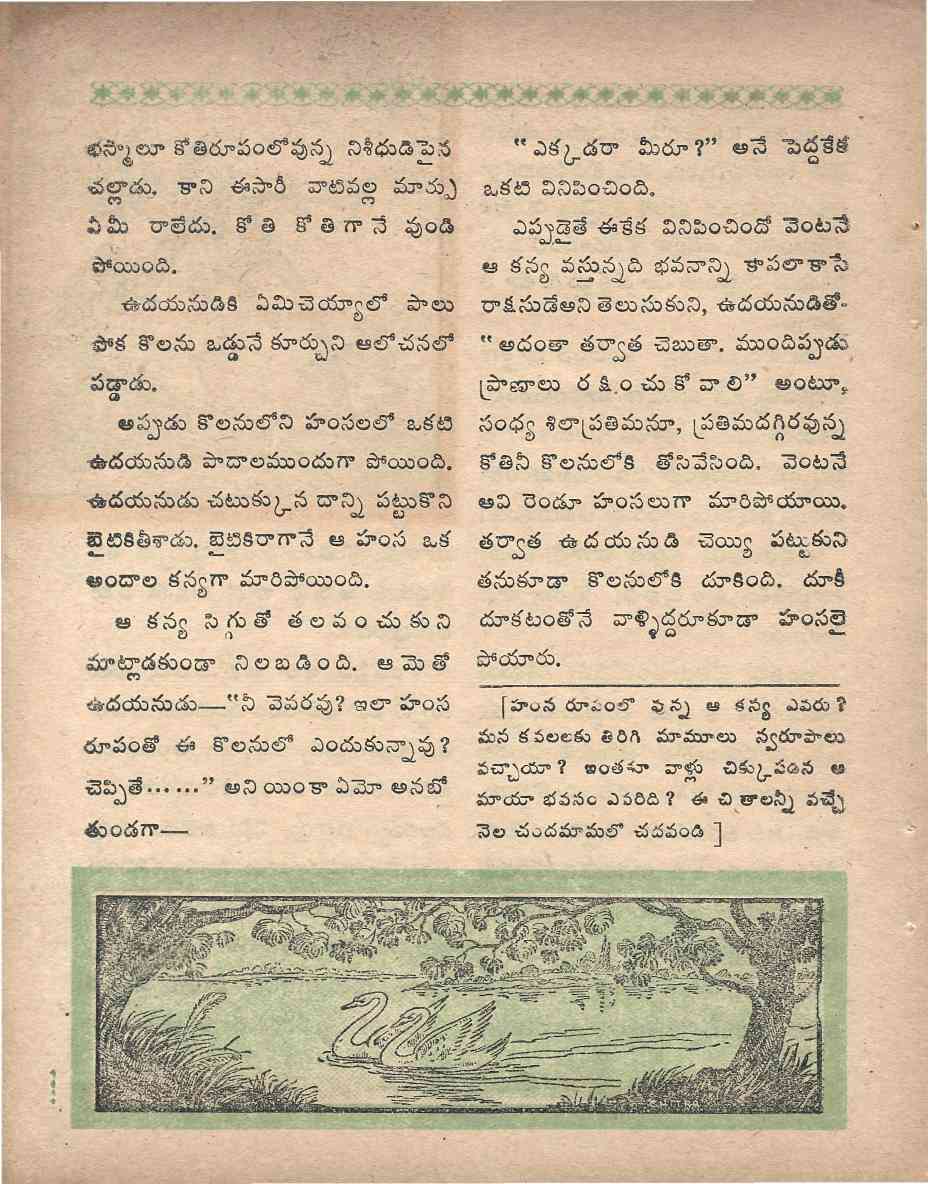 భస్మాలూ కోతిరూపంలోవున్న నిశీధుడిపైన
చల్లాడు. కాని ఈసారీ వాటివల్ల మార్పు
ఏమీ రాలేదు. కోతి కోతిగానే వుండి
పోయింది.
ఉదయనుడికి ఏమిచెయ్యాలో పాలు
పోక కొలను ఒడ్డునే కూర్చుని ఆలోచనలో
పడ్డాడు.
అప్పుడు కొలనులోని హంసలలో ఒకటి
ఉదయనుడి పాదాలముందుగా పోయింది.
ఉదయనుడు చటుక్కున దాన్ని పట్టుకొని
బైటికితీశాడు. బైటికిరాగానే ఆ హంస ఒక
అందాల కన్యగా మారిపోయింది.
ఆ కన్య సిగ్గుతో తలవంచుకుని
మాట్లాడకుండా నిలబడింది. ఆమెతో
ఉదయనుడు—“నీ వెవరవు? ఇలా హంస
రూపంతో ఈ కొలనులో ఎందుకున్నావు?
చెప్పితే......” అని యింకా ఏమో అనబో
తుండగా—
“ఎక్కడరా మీరూ?” అనే పెద్దకేక
ఒకటి వినిపించింది.
ఎప్పుడైతే ఈకేక వినిపించిందో వెంటనే
ఆ కన్య వస్తున్నది భవనాన్ని కాపలాకాసే
రాక్షసుడేఅని తెలుసుకుని, ఉదయనుడితో-
“అదంతా తర్వాత చెబుతా. ముందిప్పుడు
ప్రాణాలు రక్షించుకోవాలి” అంటూ,
సంధ్య శిలాప్రతిమనూ, ప్రతిమదగ్గిరవున్న
కోతినీ కొలనులోకి తోసివేసింది. వెంటనే
అవి రెండూ హంసలుగా మారిపోయాయి.
తర్వాత ఉదయనుడి చెయ్యి పట్టుకుని
తనుకూడా కొలనులోకి దూకింది. దూకీ
దూకటంతోనే వాళ్ళిద్దరూకూడా హంసలై
పోయారు.
[హంస రూపంలో వున్న ఆ కన్య ఎవరు?
మన కవలలకు తిరిగి మామూలు స్వరూపాలు
వచ్చాయా? ఇంతకూ వాళ్లు చిక్కుపడిన ఆ
మాయా భవనం ఎవరిది? ఈ చిత్రాలన్నీ వచ్చే
నెల చందమామలో చదవండి]
CHITRA